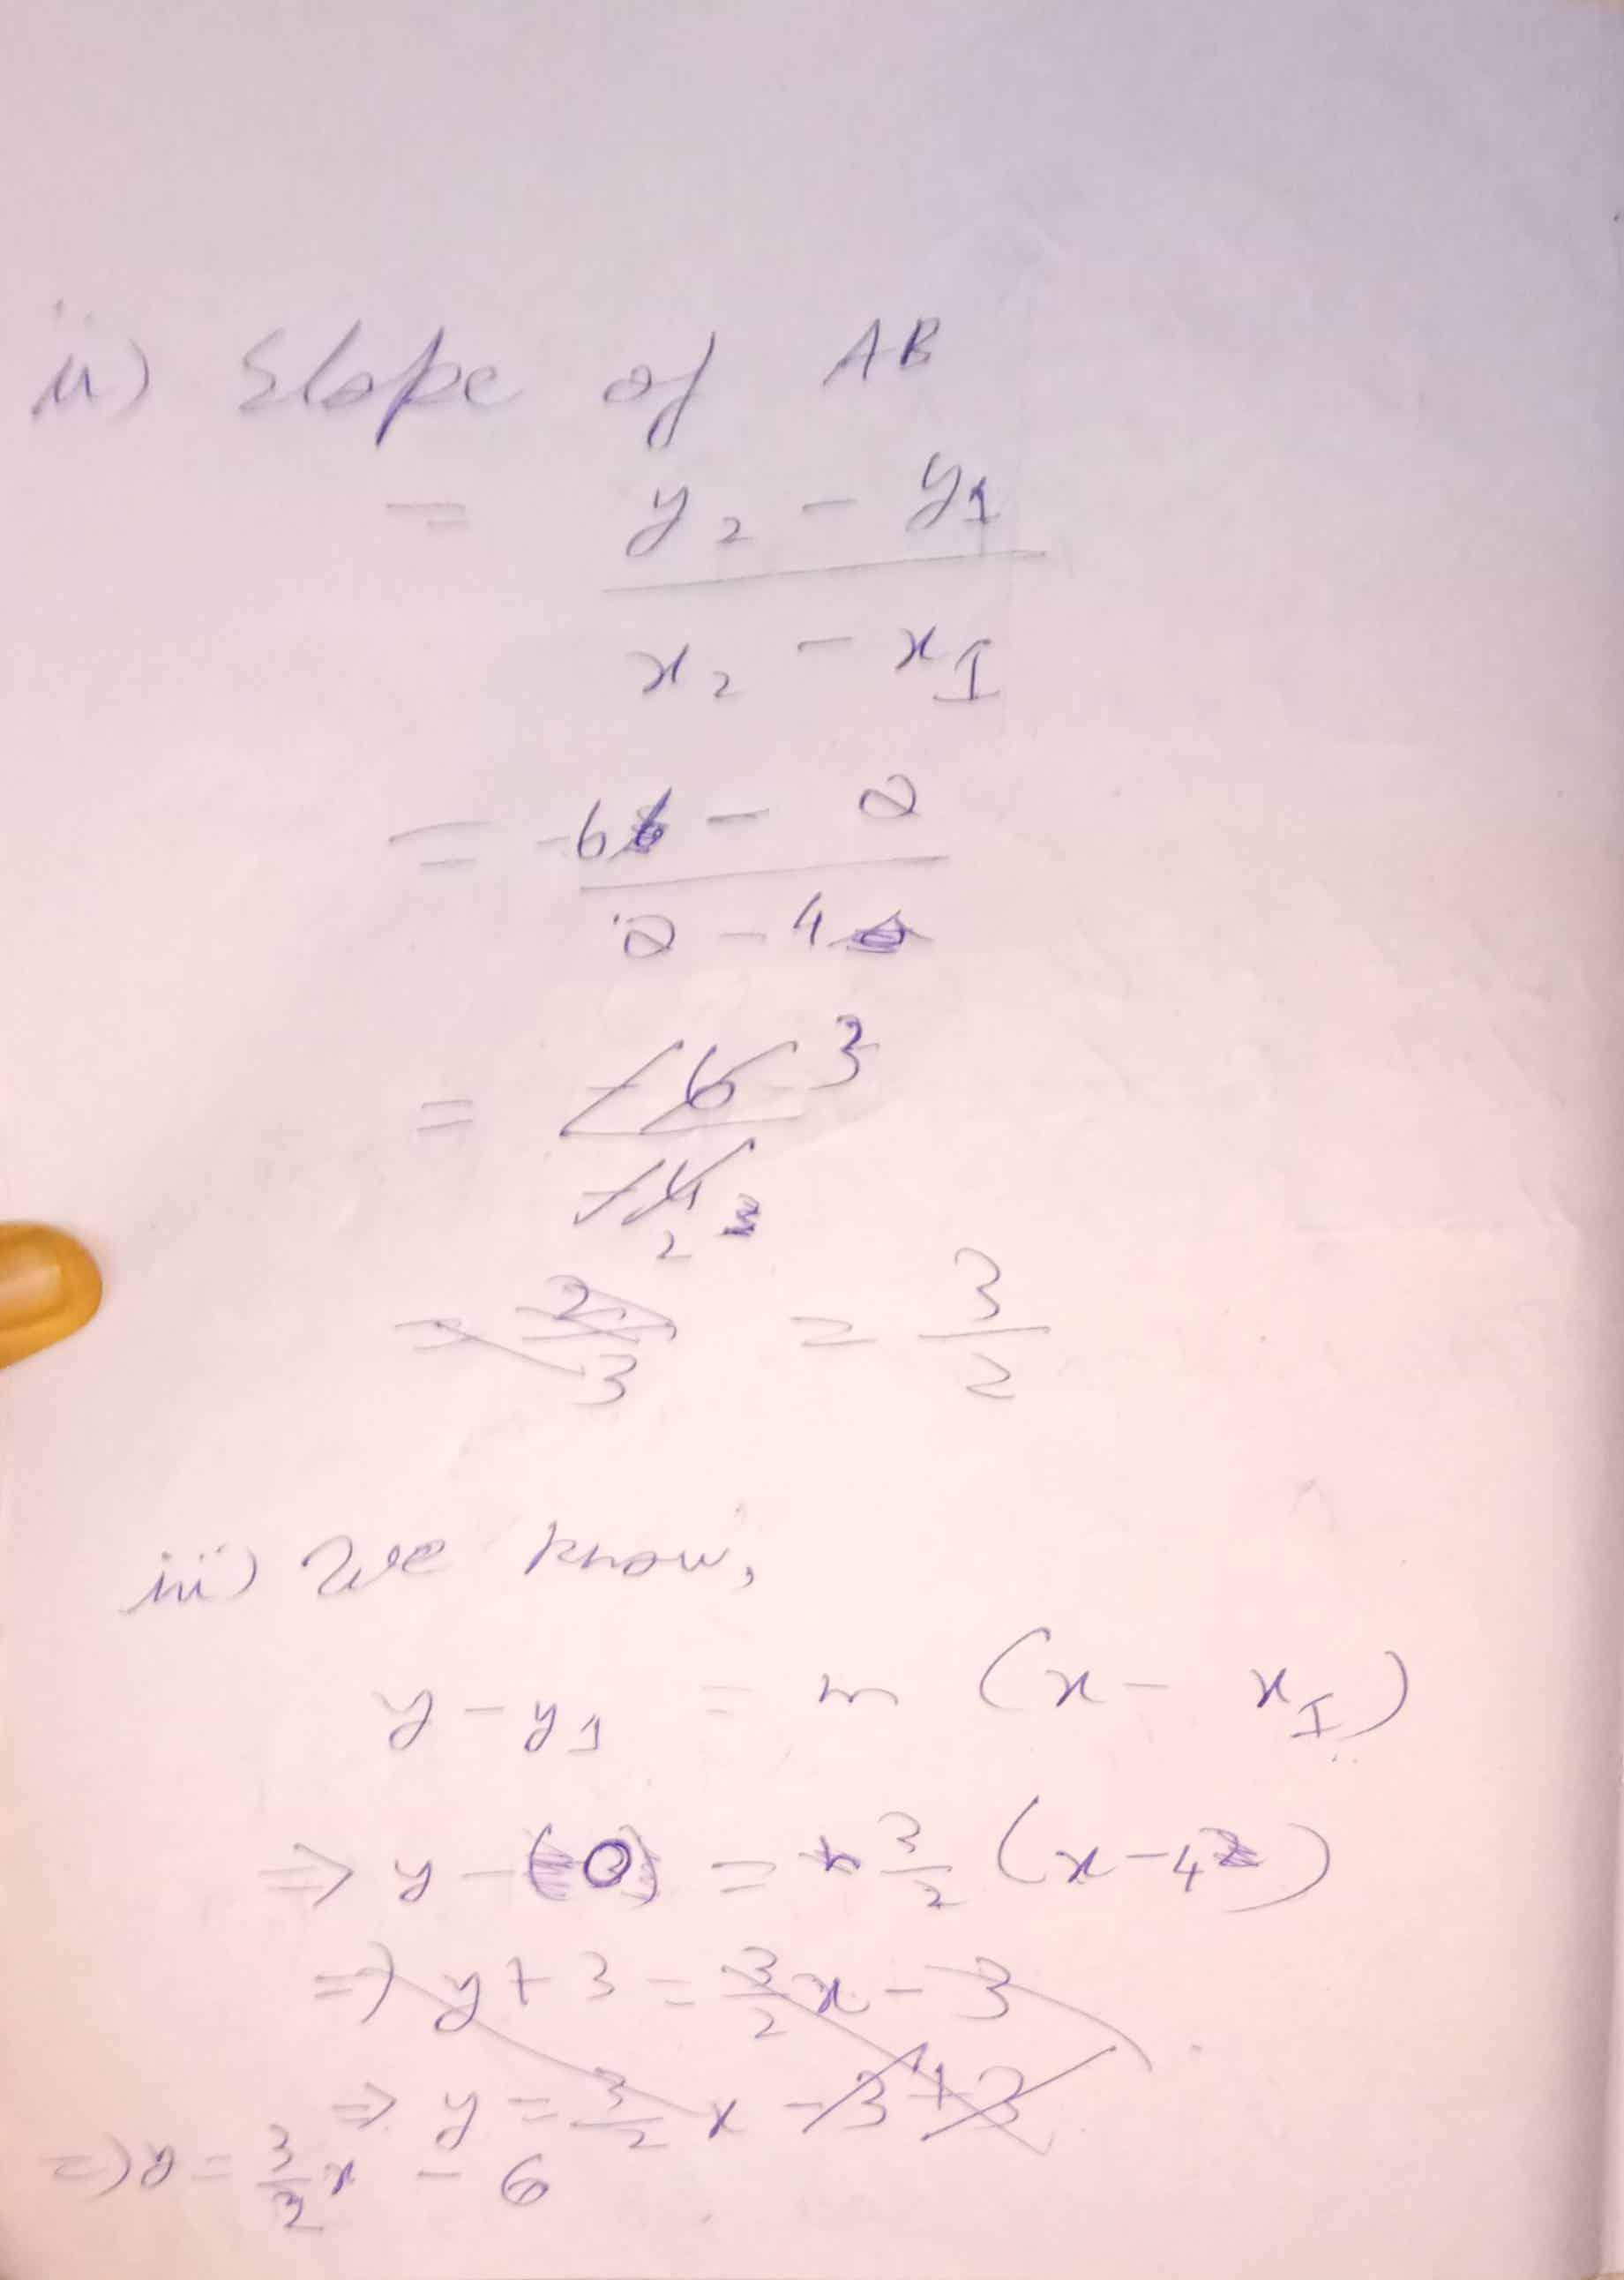 ii) Slope of AB
= y₂ - y₁
x₂ - x₁
= -6 - 0
0 - 4
= -6 3
-4 2
= 2/3 = 3/2
iii) We know,
y - y₁ = m (x - x₁)
⇒ y - 0 = 3/2 (x - 4)
⇒ y + 3 = 3/2 x - 3
⇒ y = 3/2 x - 3 + 3
⇒ y = 3/2 x - 6